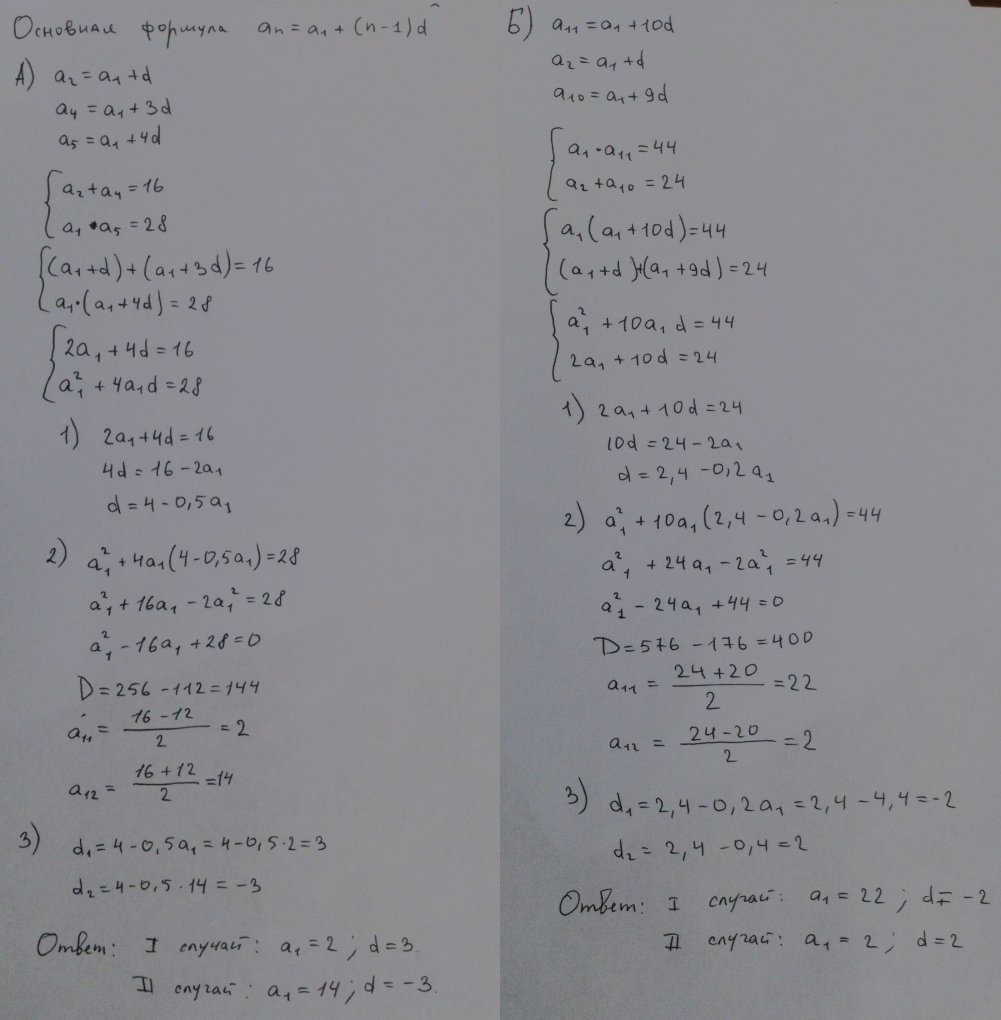 Основная формула aₙ = a₁ + (n-1)d
А) a₂ = a₁ + d
a₄ = a₁ + 3d
a₅ = a₁ + 4d
{ a₂ + a₄ = 16
a₁ • a₅ = 28
{ (a₁ + d) + (a₁ + 3d) = 16
a₁ · (a₁ + 4d) = 28
{ 2a₁ + 4d = 16
a₁² + 4a₁d = 28
1) 2a₁ + 4d = 16
4d = 16 - 2a₁
d = 4 - 0,5a₁
2) a₁² + 4a₁(4 - 0,5a₁) = 28
a₁² + 16a₁ - 2a₁² = 28
a₁² - 16a₁ + 28 = 0
D = 256 - 112 = 144
a₁₁ = (16 - 12)/2 = 2
a₁₂ = (16 + 12)/2 = 14
3) d₁ = 4 - 0,5a₁ = 4 - 0,5·2 = 3
d₂ = 4 - 0,5 · 14 = -3
Ответ: I случай: a₁ = 2; d = 3.
II случай: a₁ = 14; d = -3.
Б) a₁₁ = a₁ + 10d
a₂ = a₁ + d
a₁₀ = a₁ + 9d
{ a₁ · a₁₁ = 44
a₂ + a₁₀ = 24
{ a₁(a₁ + 10d) = 44
(a₁ + d) + (a₁ + 9d) = 24
{ a₁² + 10a₁d = 44
2a₁ + 10d = 24
1) 2a₁ + 10d = 24
10d = 24 - 2a₁
d = 2,4 - 0,2a₁
2) a₁² + 10a₁(2,4 - 0,2a₁) = 44
a₁² + 24a₁ - 2a₁² = 44
a₁² - 24a₁ + 44 = 0
D = 576 - 176 = 400
a₁₁ = (24 + 20)/2 = 22
a₁₂ = (24 - 20)/2 = 2
3) d₁ = 2,4 - 0,2a₁ = 2,4 - 4,4 = -2
d₂ = 2,4 - 0,4 = 2
Ответ: I случай: a₁ = 22; d = -2
II случай: a₁ = 2; d = 2